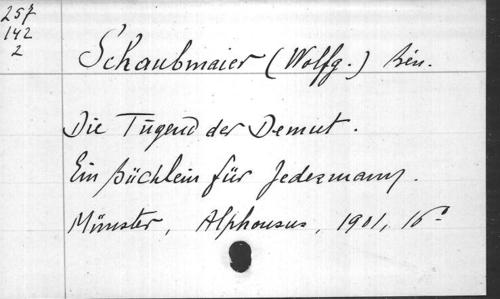 257
142
2
Schaubmaier (Wolfg.)
Die Tugend der Demut.
Ein Büchlein für Jedermann.
Münster, Alphonsus, 1901, 16°